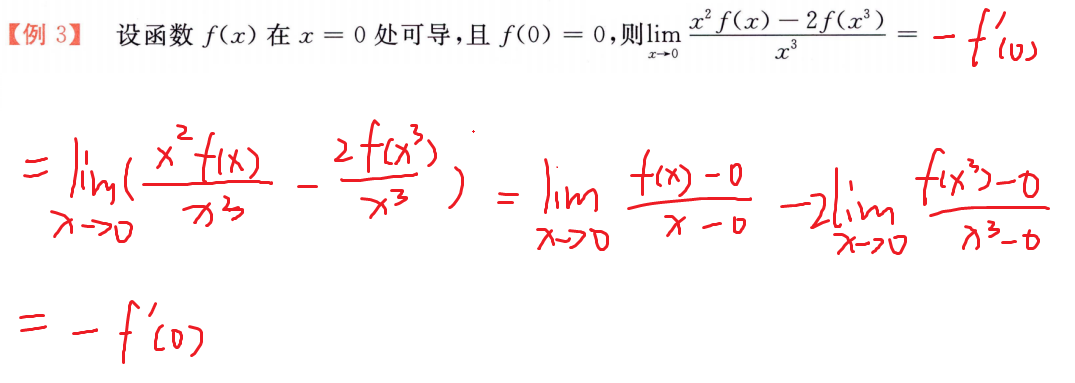 【例 3】 设函数 f(x) 在 x = 0 处可导,且 f(0) = 0,则 lim_{x→0} \frac{x^2 f(x) - 2f(x^3)}{x^3} = -f'(0)
= lim_{x→0} ( \frac{x^2 f(x)}{x^3} - \frac{2f(x^3)}{x^3} ) = lim_{x→0} \frac{f(x)-0}{x-0} - 2 lim_{x→0} \frac{f(x^3)-0}{x^3-0}
= -f'(0)